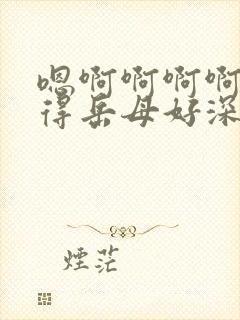 嗯啊啊啊啊
得岳母好深
煙茫